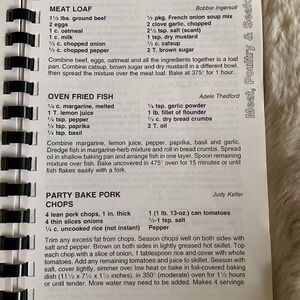 MEAT LOAF
Bobbie Ingersoll
1½ lbs. ground beef
2 eggs
1 c. oatmeal
1 c. milk
½ c. chopped onion
½ c. chopped pepper
½ pkg. French onion soup mix
2 clove garlic, chopped
2½ tsp. salt (scant)
1 tsp. dry mustard
½ c. catsup
2 T. brown sugar
Combine beef, eggs, oatmeal and all the ingredients together is a loaf
pan. Combine catsup, brown sugar and dry mustard in a different bowl,
then spread the mixture over the meat loaf. Bake at 375° for 1 hour.
OVEN FRIED FISH
Adele Thedford
¼ c. margarine, melted
1 T. lemon juice
¼ tsp. pepper
½ tsp. paprika
½ tsp. basil
¼ tsp. garlic powder
1 lb. fillet of flounder
¾ c. dry bread crumbs
2 T. oil
Combine margarine, lemon juice, pepper, paprika, basil and garlic.
Dredge fish in margarine-herb mixture and roll in bread crumbs. Spread
oil in shallow baking pan and arrange fish in one layer. Spoon remaining
mixture over fish. Bake uncovered in 475° oven for 15 minutes or until
fish flakes easily with a fork.
PARTY BAKE PORK
CHOPS
Judy Keller
4 lean pork chops, 1 in. thick
4 thin slices onions
¼ c. uncooked rice (not instant)
1 (1 lb. 13-oz.) can tomatoes
½ tsp. salt
Pepper
Trim any excess fat from chops. Season chops well on both sides with
salt and pepper. Brown on both sides in lightly greased hot skillet. Top
each chop with a slice of onion, 1 tablespoon rice and cover with whole
tomatoes. Add any remaining tomatoes and juice to skillet. Season with
salt, cover tightly, simmer over low heat or bake in foil-covered baking
dish (11½ x 7½ x 1½ inches), in 350° (moderate) oven for 1½ hours
or until tender. More water may be needed to be added. Makes 4 servings.
Meat, Poultry & Seafood